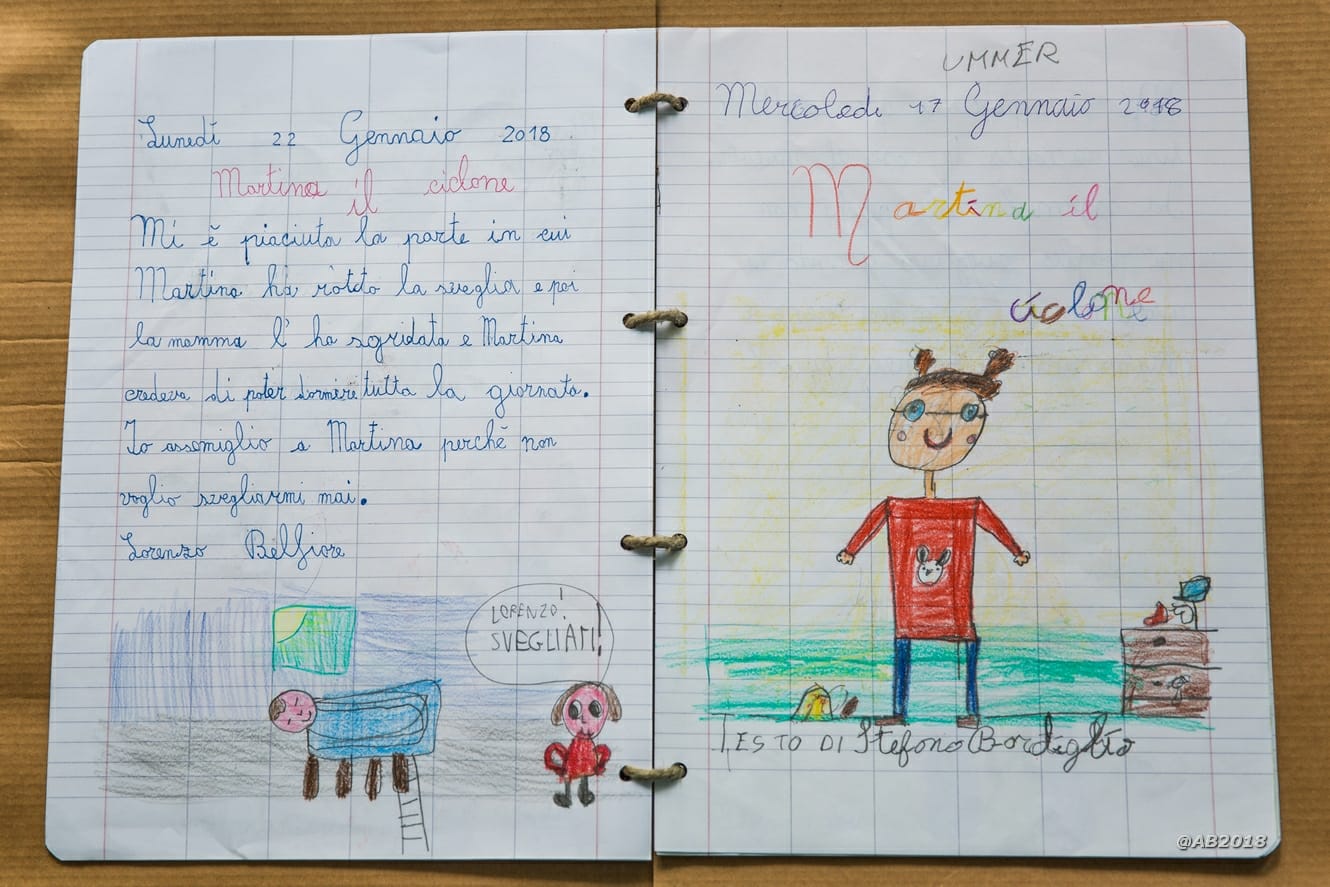 Lunedì 22 Gennaio 2018
Martina il ciclone
Mi è piaciuta la parte in cui
Martina ha rotto la sveglia e poi
la mamma l'ha sgridata e Martina
credeva di poter dormire tutta la giornata.
Io assomiglio a Martina perchè non
voglio svegliarmi mai.
Lorenzo Belfiore
LORENZO!
SVEGLIATI!
UMMER
Mercoledì 17 Gennaio 2018
Martina il
ciclone
TESTO DI Stefano Bordiglio
@AB2018